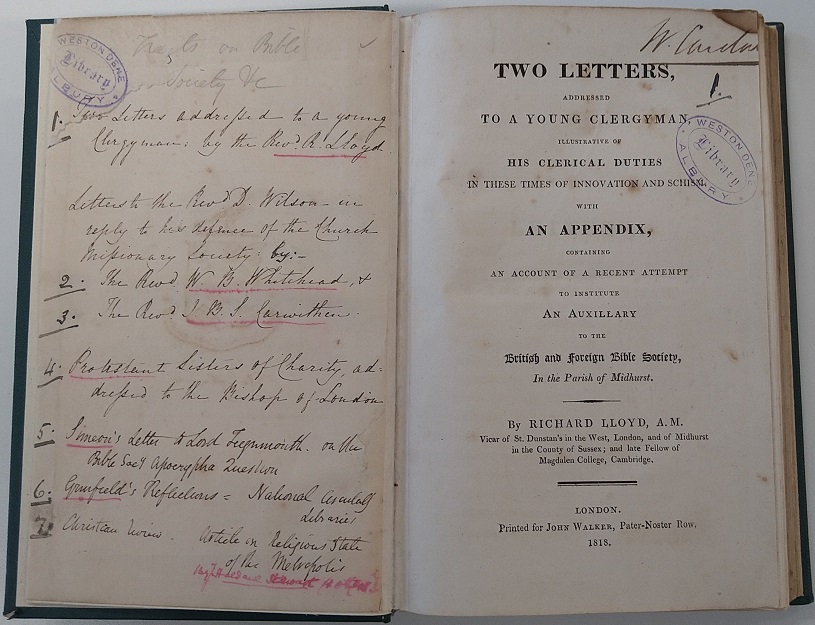 WESTON DENE
Library
ALBURY
Tracts on Bible
Society &c
1. Two Letters addressed to a young
Clergyman: by the Revd. R. Lloyd.
Letters to the Revd D. Wilson in
reply to his defence of the Church
Missionary Society: by:-
2. The Revd W. B. Whitehead, &
3. The Revd J. B. S. Carwithen
4. Protestant Sisters of Charity, ad-
dressed to the Bishop of London
5. Simeon's Letter to Lord Teignmouth. on the
Bible Socy Apocrypha Question
6. Grinfield's Reflections = National
Libraries
7. Christian Review. Article on Religious State
of the Metropolis
W.
1.
TWO LETTERS,
ADDRESSED
TO A YOUNG CLERGYMAN,
ILLUSTRATIVE OF
HIS CLERICAL DUTIES
IN THESE TIMES OF INNOVATION AND SCHISM
WITH
AN APPENDIX,
CONTAINING
AN ACCOUNT OF A RECENT ATTEMPT
TO INSTITUTE
AN AUXILLARY
TO THE
British and Foreign Bible Society,
In the Parish of Midhurst.
By RICHARD LLOYD, A.M.
Vicar of St. Dunstan's in the West, London, and of Midhurst
in the County of Sussex; and late Fellow of
Magdalen College, Cambridge.
LONDON.
Printed for JOHN WALKER, Pater-Noster Row.
1818.
WESTON DENE
Library
ALBURY